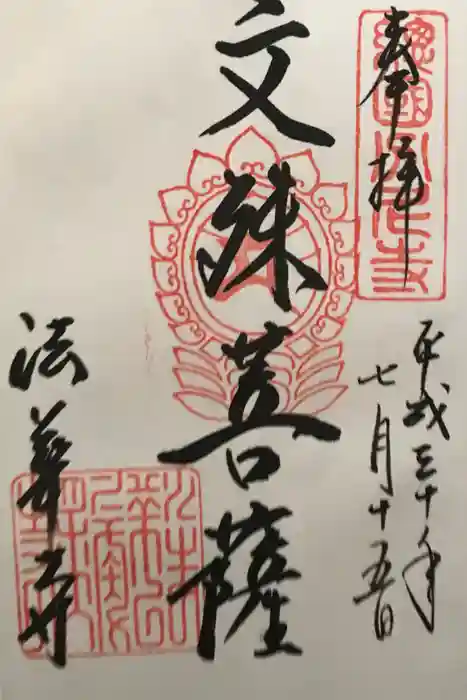 奉拝
平成三十年
七月十五日
文殊菩薩
法華寺